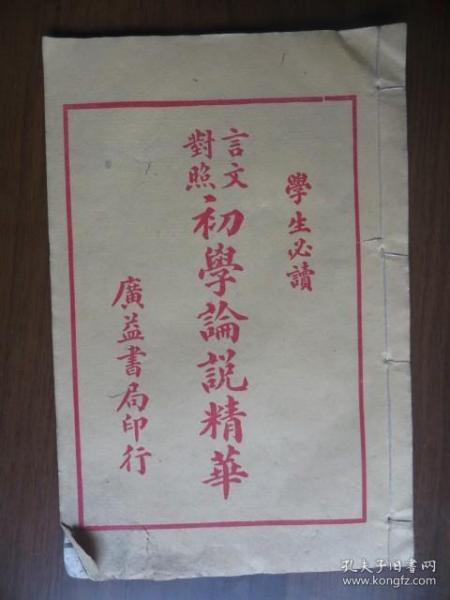 學生必讀
言文對照
初學論説精華
廣益書局印行
孔夫子旧书网
www.kongfz.com